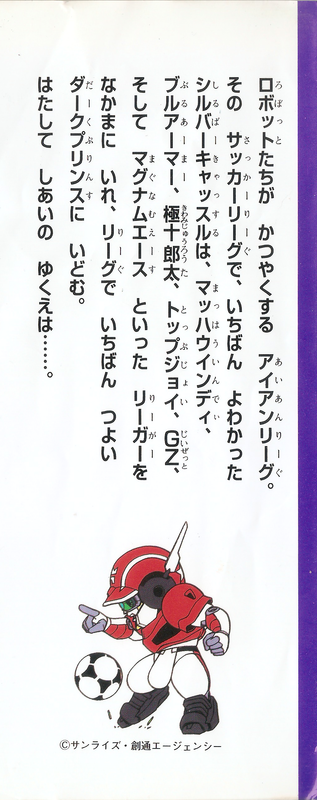 ロボットたちが　かつやくする　アイアンリーグ。
その　サッカーリーグで、いちばん　よわかった
シルバーキャッスルは、マッハウインディ、
ブルアーマー、極十郎太、トップジョイ、GZ、
そして　マグナムエース　といった　リーガーを
なかまに　いれ、リーグで　いちばん　つよい
ダークプリンスに　いどむ。
はたして　しあいの　ゆくえは……。
©サンライズ・創通エージェンシー